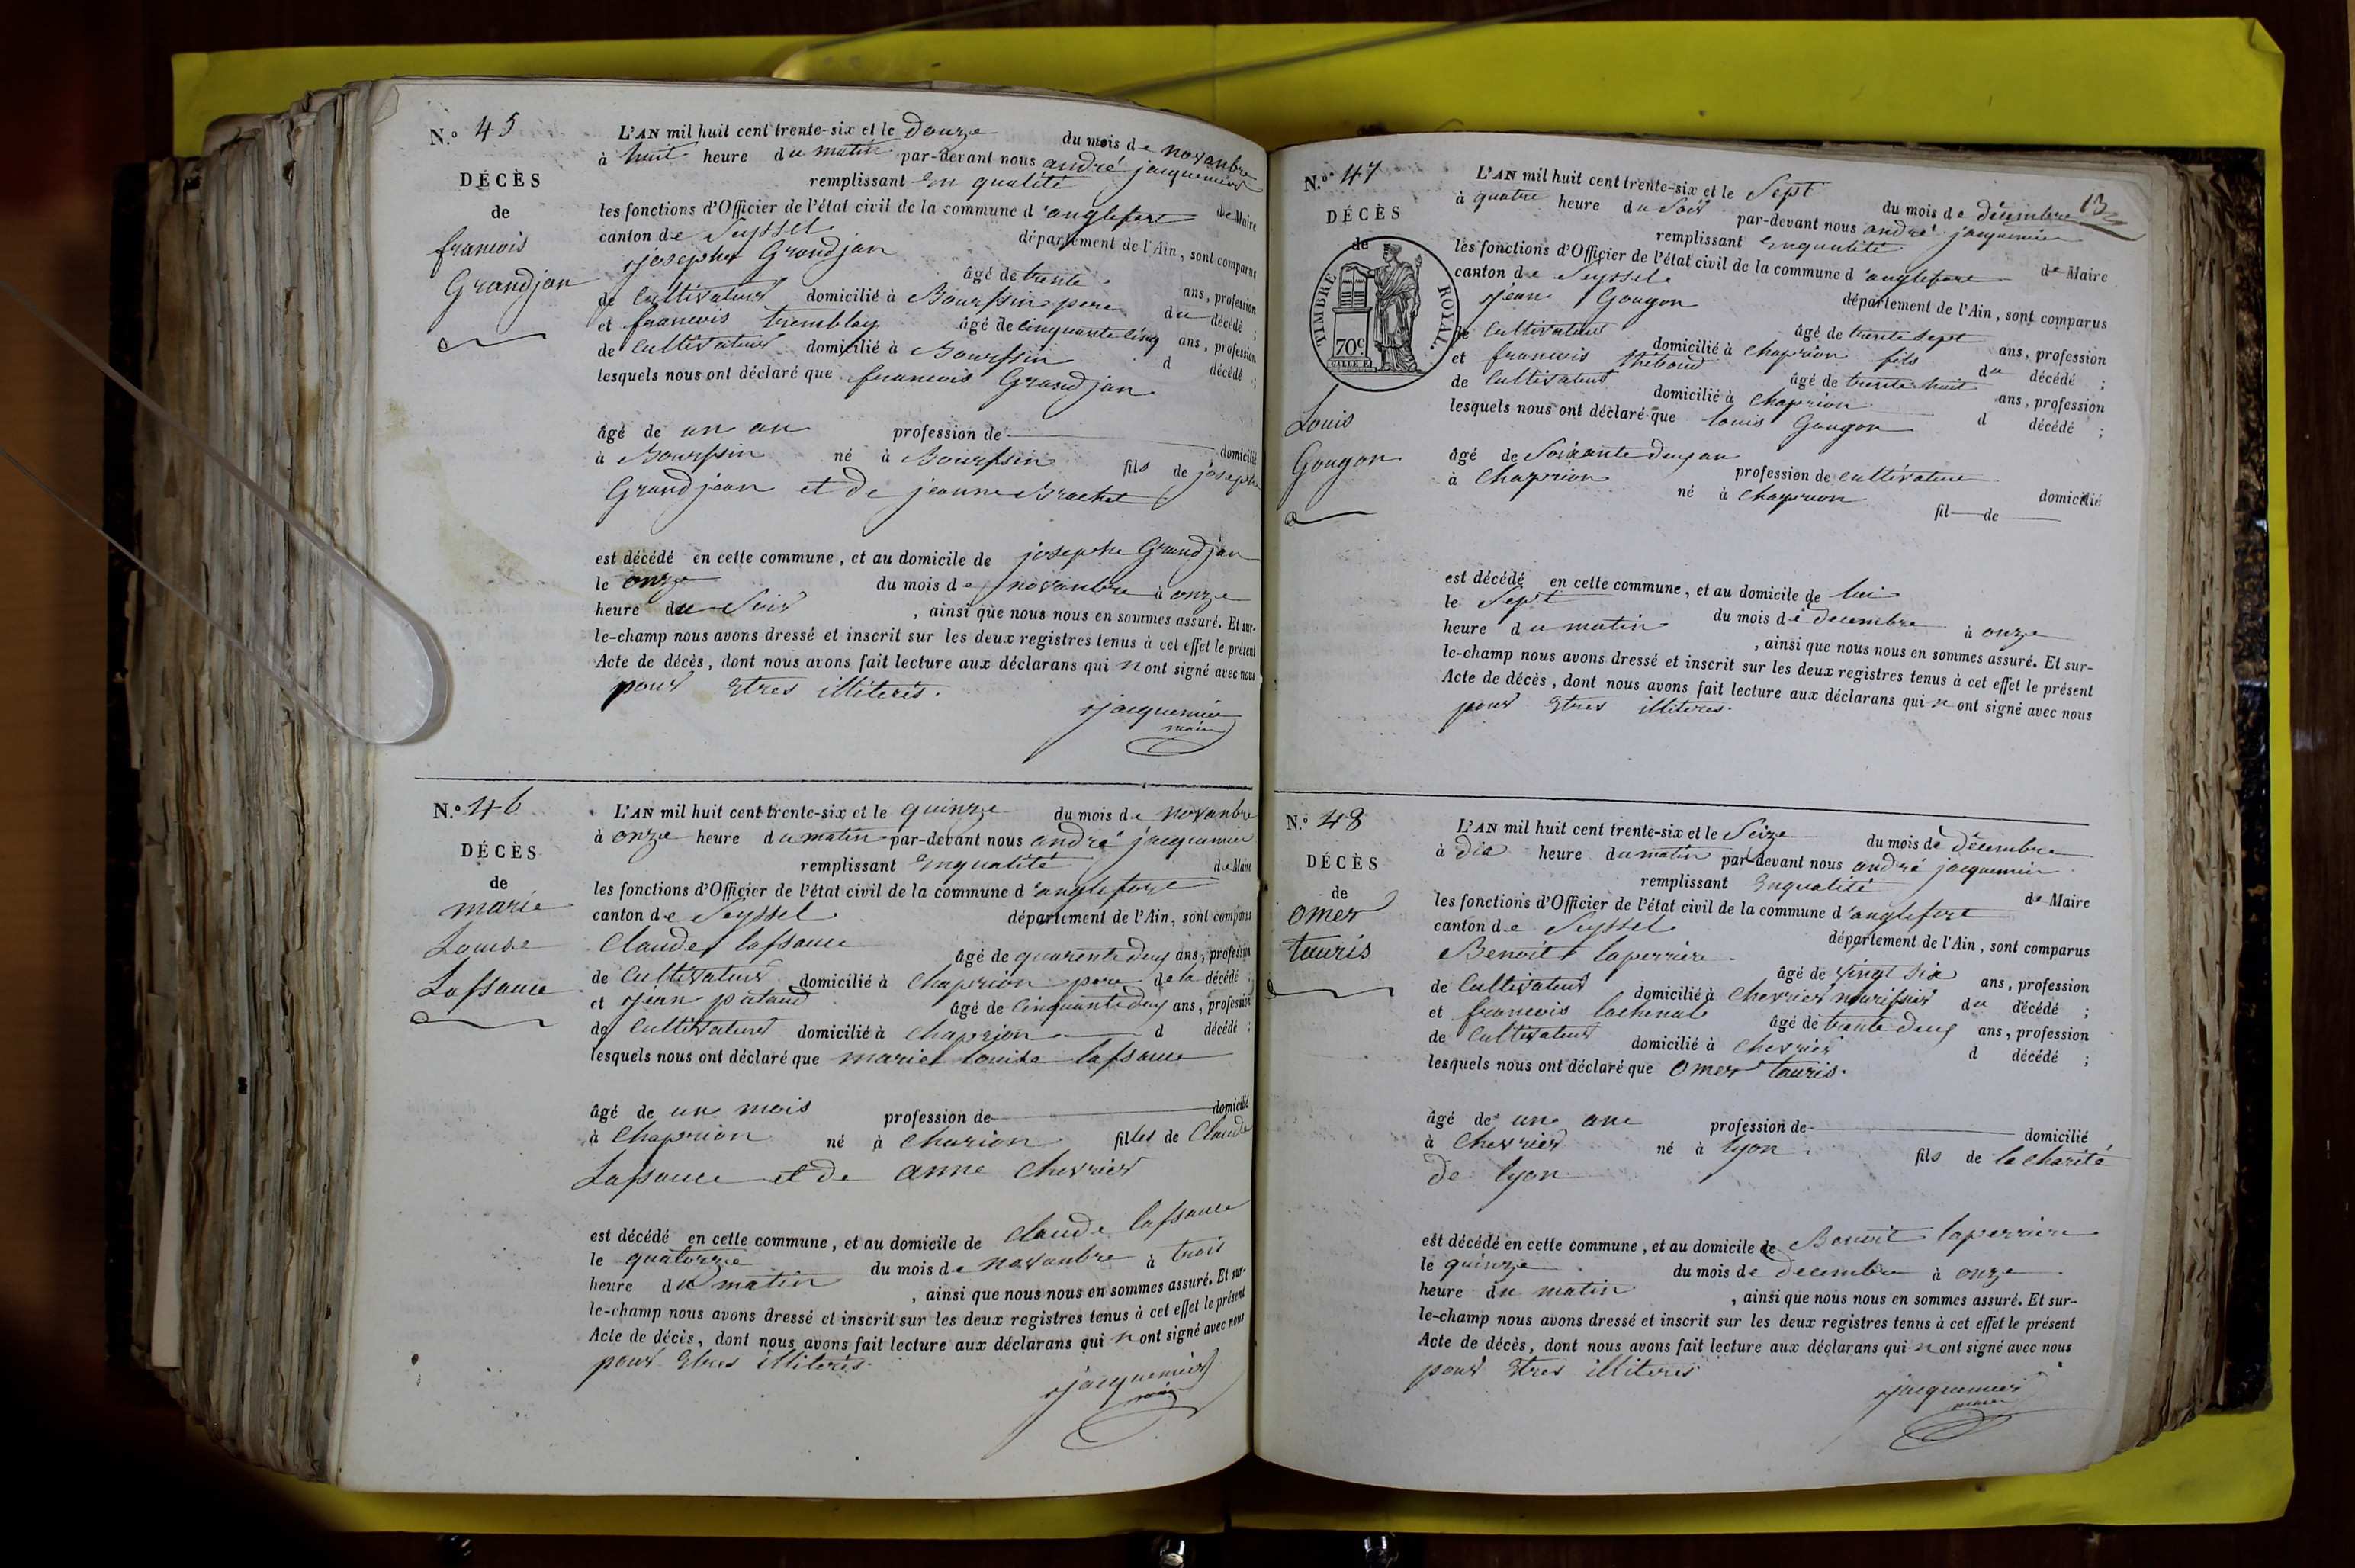 N.° 45
DÉCÈS
de
francois
Grandjan
L'AN mil huit cent trente-six et le douze du mois de novanbre
à huit heure du matin par-devant nous andré jacquemier
remplissant en qualité de Maire
les fonctions d'Officier de l'état civil de la commune d'anglefort
canton de Seyssel département de l'Ain, sont comparus
josephe Grandjan âgé de trente ans, profession
de Cultivateur domicilié à Bourssin pere du décédé ;
et francois tremblay âgé de cinquante cinq ans, profession
de Cultivateur domicilié à Bourssin d décédé ;
lesquels nous ont déclaré que francois Grandjan
âgé de un an profession de
domicilié
à Bourssin né à Bourssin fils de josephe
Grandjean et de jeanne Brachet
est décédé en cette commune, et au domicile de josephe Grandjan
le onze du mois de novanbre à onze
heure du Soir , ainsi que nous nous en sommes assuré. Et sur-
le-champ nous avons dressé et inscrit sur les deux registres tenus à cet effet le présent
Acte de décès, dont nous avons fait lecture aux déclarans qui n'ont signé avec nous
pour Etres illiterés.
jacquemier
maire
N.° 46
DÉCÈS
de
marie
Louise
Lassauce
L'AN mil huit cent trente-six et le quinze du mois de novanbre
à onze heure du matin par-devant nous andré jacquemier
remplissant Enqualité de Maire
les fonctions d'Officier de l'état civil de la commune d'anglefort
canton de Seyssel département de l'Ain, sont comparus
Claude lassauce âgé de quarente deux ans, profession
de Cultivateur domicilié à Chaprion pere de la décédé ;
et jean putaud âgé de Cinquante deux ans, profession
de Cultivateur domicilié à Chaprion d décédé ;
lesquels nous ont déclaré que marie louise lassauce
âgé de un mois profession de domicilié
à Chaprion né à Charion filles de Claude
Lassauce et de anne Chevrier
est décédé en cette commune, et au domicile de Claude lassauce
le quatorze du mois de novanbre à trois
heure du matin , ainsi que nous nous en sommes assuré. Et sur-
le-champ nous avons dressé et inscrit sur les deux registres tenus à cet effet le présent
Acte de décès, dont nous avons fait lecture aux déclarans qui n'ont signé avec nous
pour Etres illiterés.
jacquemier
maire
13
N.° 47
DÉCÈS
de
TIMBRE ROYAL.
70c
Louis
Gougon
L'AN mil huit cent trente-six et le Sept du mois de décembre
à quatre heure du Soir par-devant nous andré jacquemier
remplissant Enqualité de Maire
les fonctions d'Officier de l'état civil de la commune d'anglefort
canton de Seyssel département de l'Ain, sont comparus
jean Gougon âgé de trente sept ans, profession
de Cultivateur domicilié à Chaprion fils du décédé ;
et francois thiboud âgé de trente huit ans, profession
de Cultivateur domicilié à Chaprion d décédé ;
lesquels nous ont déclaré que louis Gougon
âgé de Soixante deux an profession de Cultivateur domicilié
à Chaprion né à Chaprion fil de
est décédé en cette commune, et au domicile de lui
le Sept du mois de décembre à onze
heure du matin , ainsi que nous nous en sommes assuré. Et sur-
le-champ nous avons dressé et inscrit sur les deux registres tenus à cet effet le présent
Acte de décès, dont nous avons fait lecture aux déclarans qui n'ont signé avec nous
pour Etres illiteres.
N.° 48
DÉCÈS
de
Omer
tauris
L'AN mil huit cent trente-six et le Seize du mois de décembre
à dix heure du matin par-devant nous andré jacquemier
remplissant Enqualité de Maire
les fonctions d'Officier de l'état civil de la commune d'anglefort
canton de Seyssel département de l'Ain, sont comparus
Benoit laperriere âgé de vingt six ans, profession
de Cultivateur domicilié à Chevrier nourissier du décédé ;
et francois lachenal âgé de trente deux ans, profession
de Cultivateur domicilié à Chevrier d décédé ;
lesquels nous ont déclaré que Omer tauris.
âgé de un ane profession de domicilié
à Chevrier né à lyon fils de la charité
de lyon
est décédé en cette commune, et au domicile de Benoit laperriere
le quinze du mois de decembre à onze
heure du matin , ainsi que nous nous en sommes assuré. Et sur-
le-champ nous avons dressé et inscrit sur les deux registres tenus à cet effet le présent
Acte de décès, dont nous avons fait lecture aux déclarans qui n'ont signé avec nous
pour Etres illiterés
jacquemier
maire